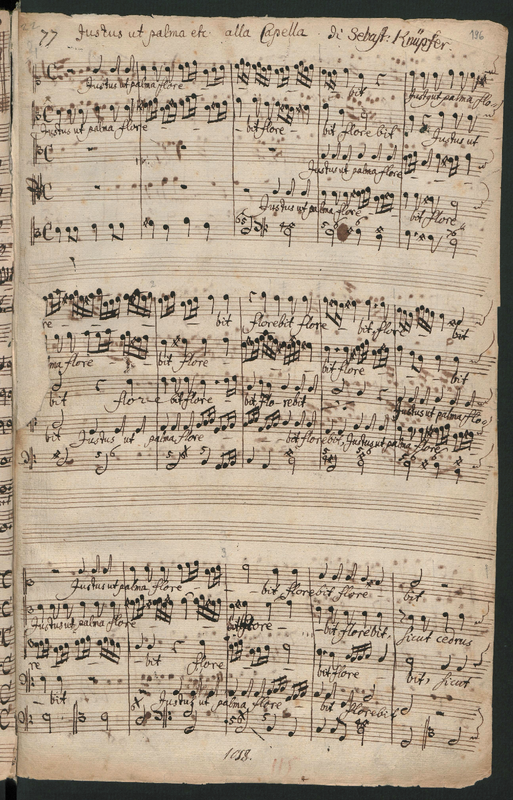 77 Justus ut palma etc alla Capella di Sebast: Knüpfer 196
Justus ut palma flore bit Justus ut palma flo
Justus ut palma flore bit flore bit flore bit Justus ut
Justus ut palma flore
Justus ut palma flore bit flore
re bit florebit flore bit flore bit
ma flore bit flore bit flore bit
bit flore bit flore bit flo rebit Justus ut palma flo
bit Justus ut palma flore bit florebit, Justus ut palma flore
Justus ut palma flore bit florebit flore bit
Justus ut palma flore bit flore bit florebit, sicut cedrus
re bit flore bit flore bit, sicut
bit Justus ut palma flore bit florebit